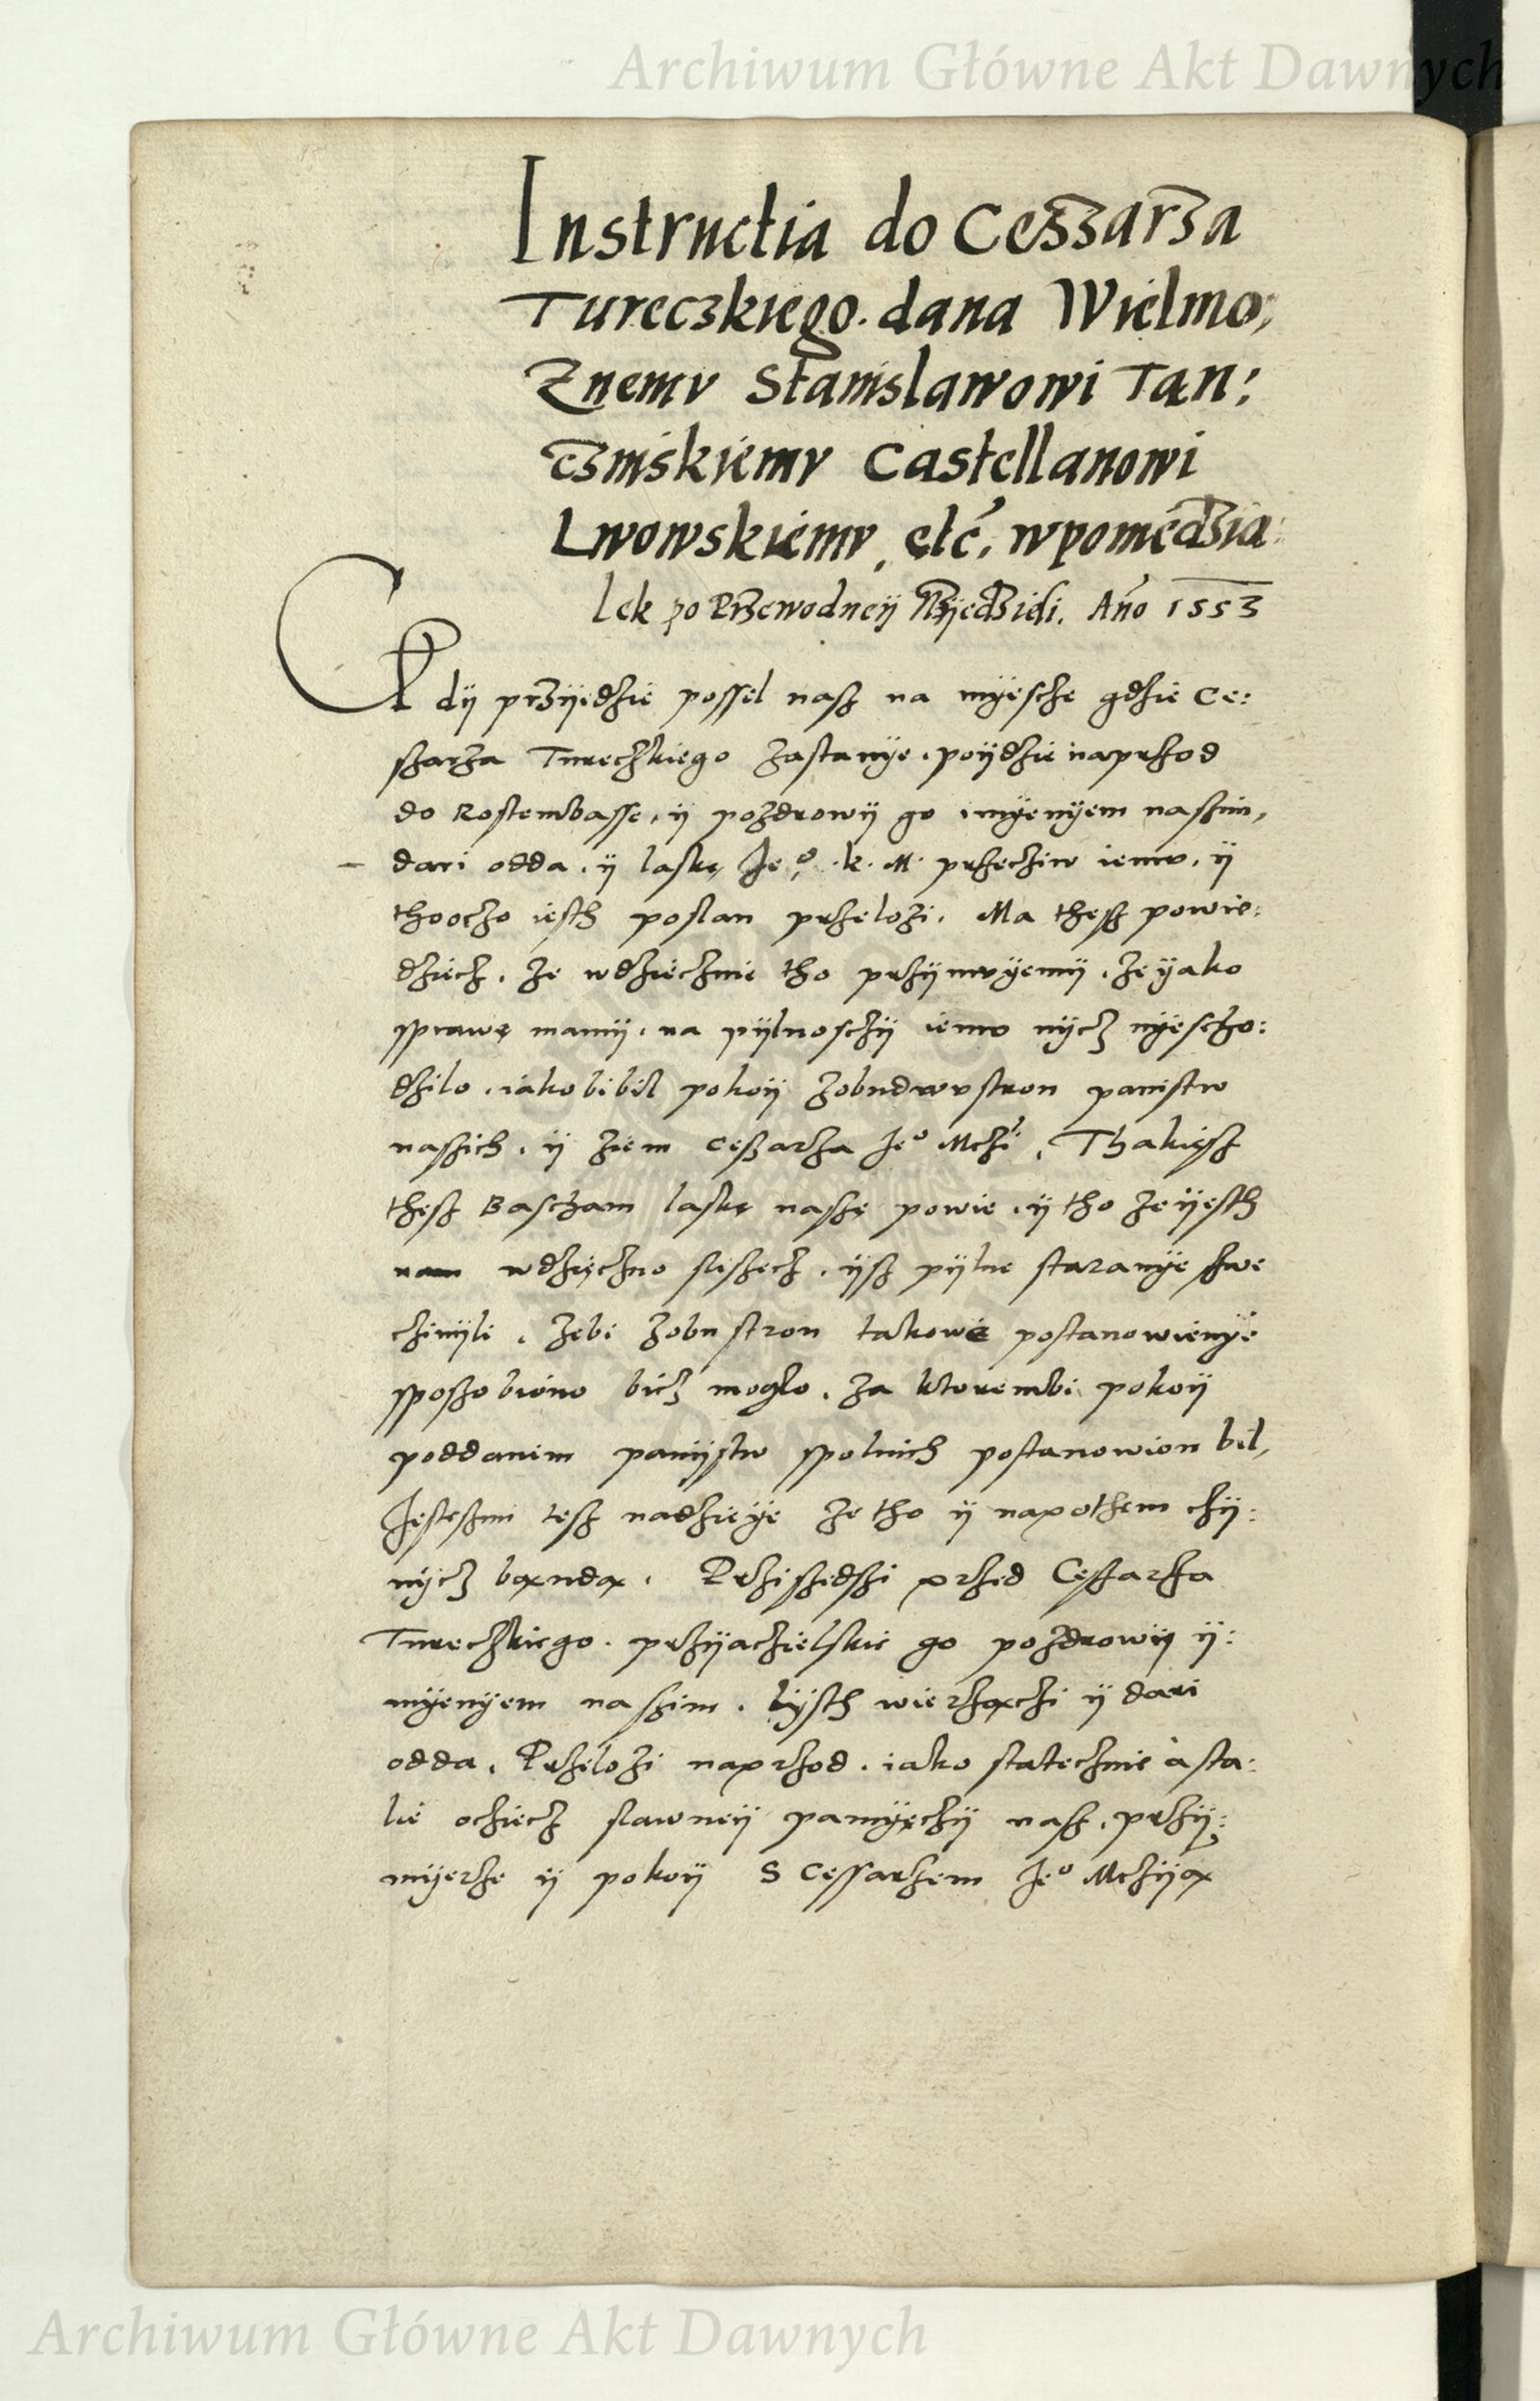 Archiwum Główne Akt Dawnych
Instructia do Cesszarza
Tureczkiego. dana Wielmo:
Znemv Stanislawowi Tan:
czinskiemv Castellanowi
Lwowskiemv, etc. wponiedzia:
lek po Przewodneÿ Nyedzieli. Ano 1553
Gdÿ przÿiedzie possel nasz na mÿescze gdzie Ce:
szarza Tureczkiego zastanÿe. poÿdzie naprzod
do Rostembasse, ÿ pozdrowÿ go imÿenÿem naszim,
dari odda. ÿ laskę Jeo. K. M. przecziw iemv. ÿ
thooczo iesth poslan przelozi. Ma thesz powie:
dziecz. ze wdziecznie tho przÿmvÿemÿ. ze ÿako
sprawę mamÿ. na pÿlnosczÿ iemv nÿcz nÿescho:
dzilo. iakobi bil pokoÿ zobudwvstron panistw
naszich. ÿ ziem Ceszarza Jeo Mczi. Thakiesz
thesz Baszam laskę naszę powie. ÿ tho ze ÿesth
nam wdzięczno slisecz. ÿsz pÿlne staranÿe swe
czinÿli. zebi zobu stron takowe postanowienÿe
sposzobiono bicz moglo. za ktorembi pokoÿ
poddanim panÿstw spolnich postanowion bil,
Jestesmi tesz nadzieÿe ze tho ÿ napothem czÿ:
nÿcz bąndą. Prziszedszi przed Ceszarza
Tureczkiego. przÿaczielskie go pozdrowÿ ÿ:
mÿenÿem naszim. Lÿsth wierzączi ÿ dari
odda. Przelozi naprzod. iako statecznie a sta:
lie ocziecz slawneÿ pamÿęczÿ nasz. przÿ:
mÿerze ÿ pokoÿ S Cessarzem Jeo Mczÿą
Archiwum Główne Akt Dawnych